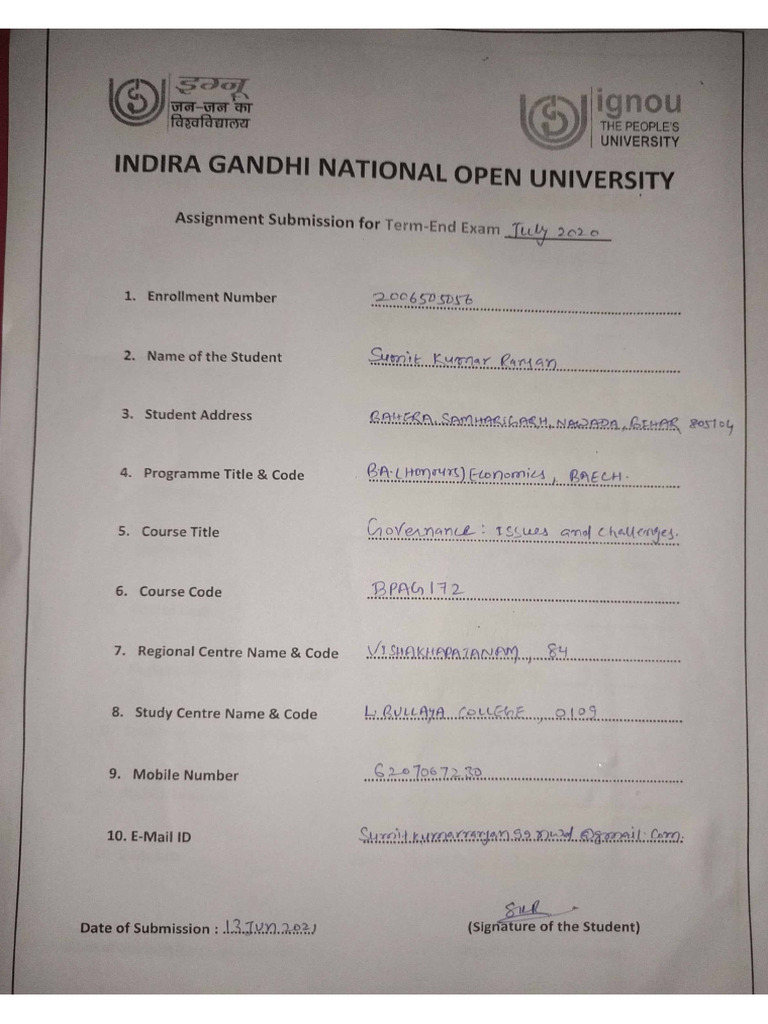 इग्नू
जन-जन का
विश्वविद्यालय
ignou
THE PEOPLE'S
UNIVERSITY
INDIRA GANDHI NATIONAL OPEN UNIVERSITY
Assignment Submission for Term-End Exam July 2020
1. Enrollment Number 2006505056
2. Name of the Student Sumit Kumar Ranjan
3. Student Address BAHERA, SAMHARIGARH, NAWADA, BIHAR 805104
4. Programme Title & Code BA.(Honours) Economics, BAECH.
5. Course Title Governance: Issues and challenges.
6. Course Code BPAG172
7. Regional Centre Name & Code VISHAKHAPATANAM, 84
8. Study Centre Name & Code L. BULLAYA COLLEGE, 0109
9. Mobile Number 6207067230
10. E-Mail ID Sumitkumarranjan99nwd@gmail.com.
Date of Submission : 13 JUN 2021
SKR
(Signature of the Student)